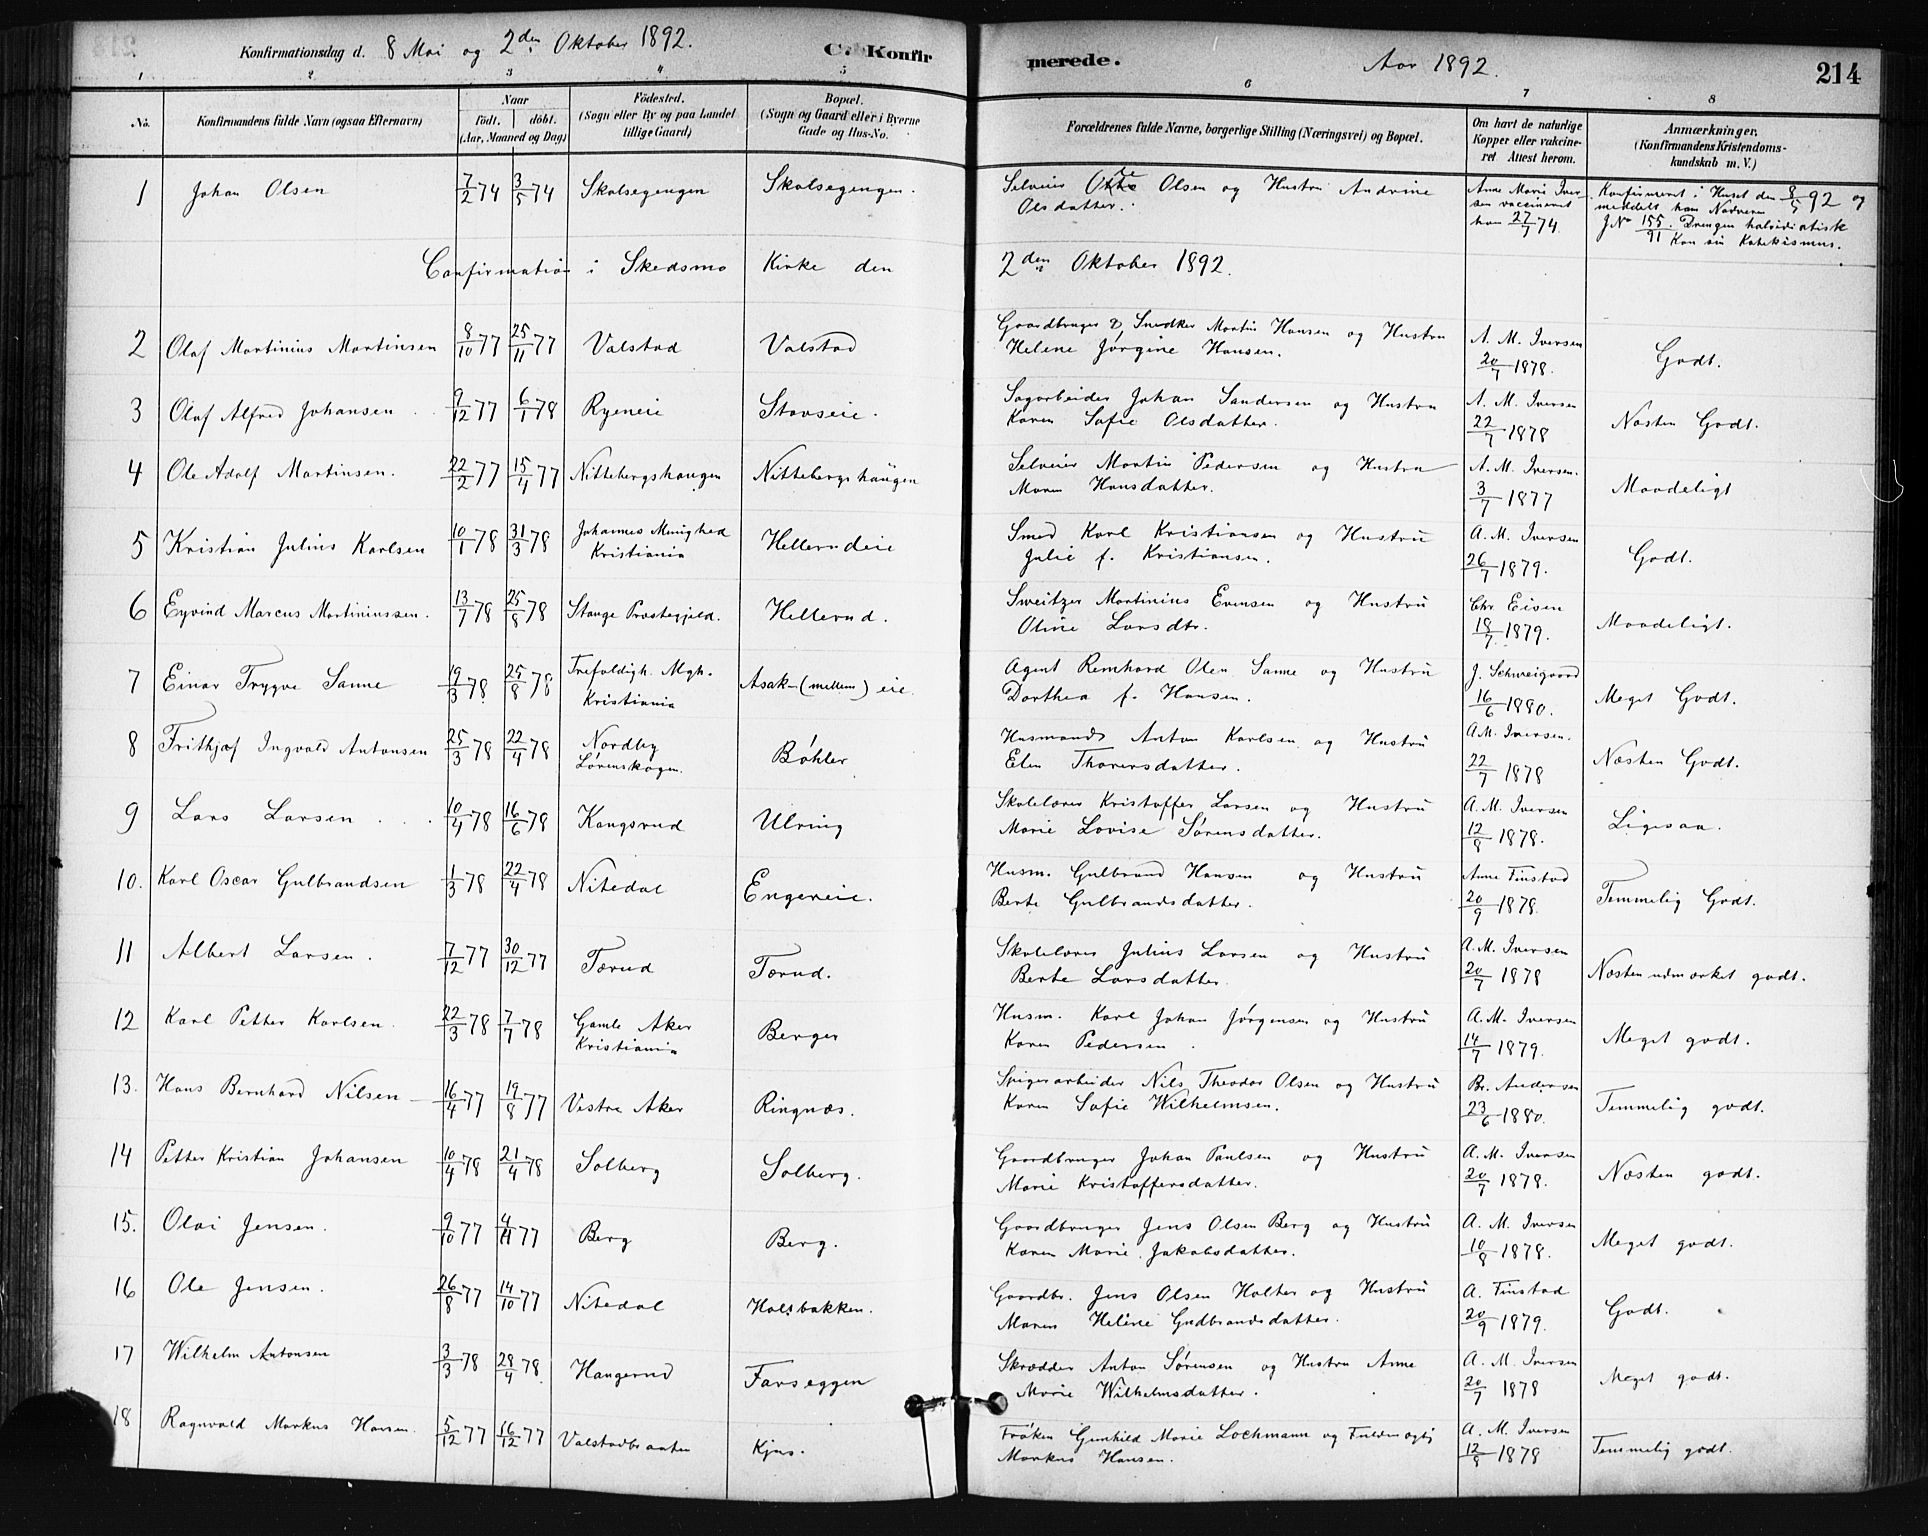 Konfirmationsdag d. 8 Mai og 2den Oktober 1892. C. Konfirmerede. Aar 1892. 214
1 2 3 4 5 6 7 8
No. Konfirmandens fulde Navn (ogsaa Efternavn) Naar født. døbt. (Aar, Maaned og Dag) Fødested. (Sogn eller By og paa Landet tillige Gaard) Bopæl. (Sogn og Gaard eller i Byerne Gade og Hus-No. Forældrenes fulde Navne, borgerlige Stilling (Næringsvei) og Bopæl. Om havt de naturlige Kopper eller vakcineret Attest herom. Anmærkninger. (Konfirmandens Kristendomskundskab m. V.)
1 Johan Olsen 7/2 74 3/5 74 Skolsegengen Skolsegengen. Selveier Olsen og Hustru Andrine Olsdatter. Anne Marie Iversen vaccineret ham 27/7 74 Konfirmeret i Huset den 8/5 92 og meddelt ham Nadveren J No 155/91. Drengen halvidiotisk Kan sin Katekismus.
Confirmation i Skedsmo Kirke den 2den Oktober 1892.
2 Olaf Martinius Martinsen 8/10 77 25/11 77 Valstad Valstad Gaardbruger & Snedker Martin Hansen og Hustru Helene Jørgine Hansen. A. M. Iversen 20/7 1878. Godt.
3 Olaf Alfred Johansen 9/12 77 6/1 78 Ryeneie Stavseie. Sagarbeider Johan Sandersen og Hustru Karen Sofie Olsdatter. A. M. Iversen 22/7 1878 Næsten Godt.
4 Ole Adolf Martinsen. 22/2 77 15/4 77 Nittebergshaugen Nittebergshaugen Selveier Martin Pedersen og Hustru Maren Hansdatter. A. M. Iversen. 3/7 1877 Maadeligt
5 Kristian Julius Karlsen 10/1 78 31/3 78 Johannes Menighed Kristiania Hellerudeie Smed Karl Kristiansen og Hustru Julie f. Kristiansen. A. M. Iversen 26/7 1879. Godt.
6 Eyvind Marcus Martiniussen. 13/7 78 25/8 78 Stange Præstegjeld. Hellerud. Sweitzer Martinius Evensen og Hustru Oline Larsdtr. Chr. Eisen 18/7 1879. Maadeligt.
7 Einar Trygve Sanne 19/3 78 25/8 78 Trefoldigh. Mgh. Kristiania Asak-(mellem) eie. Agent Reinhard Olen Sanne og Hustru Dorthea f. Hansen. J. Schweigaard 16/6 1880. Meget Godt.
8 Frithjof Ingvald Antonsen 25/3 78 22/4 78 Nordby Lørenskogen. Bøhler Husmand Anton Karlsen og Hustru Elen Thorersdatter. A.M. Iversen. 22/7 1878 Næsten Godt.
9 Lars Larsen 10/4 78 16/6 78 Kongsrud Ulring Skolelærer Kristoffer Larsen og Hustru Marie Lovise Sørensdatter. A. M. Iversen 12/8 1878. Ligesaa.
10. Karl Oscar Gulbrandsen 1/3 78 22/4 78 Nitedal Engereie. Husm. Gulbrand Hansen og Hustru Berte Gulbrandsdatter. Anne Finstad 20/9 1878. Temmelig Godt.
11 Albert Larsen. 7/12 77 30/12 77 Tærud Tærud. Skolelærer Julius Larsen og Hustru Berte Larsdatter. A. M. Iversen 20/7 1878 Næsten udmærket godt.
12 Karl Petter Karlsen. 22/3 78 7/7 78 Gamle Aker Kristiania Berger Husm. Karl Johan Jørgensen og Hustru Karen Pedersen. A. M. Iversen 14/7 1879. Meget godt.
13. Hans Bernhard Nilsen 16/4 77 19/8 77 Vestre Aker Ringnæs. Spigerarbeider Nils Theodor Olsen og Hustru Karen Sofie Wilhelmsen. Br. Andersen 23/6 1880. Temmelig godt.
14 Petter Kristian Johansen 10/4 78 21/4 78 Solberg Solberg. Gaardbruger Johan Paulsen og Hustru Marie Kristoffersdatter. A. M. Iversen 20/7 1878. Næsten godt.
15. Olai Jensen. 9/10 77 4/11 77 Berg Berg. Gaardbruger Jens Olsen Berg og Hustru Karen Marie Jakobsdatter. A. M. Iversen 10/8 1878. Meget godt.
16 Ole Jensen. 26/8 77 14/10 77 Nitedal Holsbakken. Gaardbr. Jens Olsen Holter og Hustru Maren Heléne Gudbrandsdatter. A. Finstad 20/9 1879. Godt.
17 Wilhelm Antonsen 3/3 78 28/4 78. Haugerud Farseggen Skrædder Anton Sørensen og Hustru Anne Marie Wilhelmsdatter. A. M. Iversen 20/7 1878 Meget godt.
18 Ragnvald Markus Hansen. 5/12 77 16/12 77 Valstadbraaten Kjus. Frøken Gunhild Marie Lochmann og Fuldmægtig Markus Hansen. A. M. Iversen 12/8 1878 Temmelig godt.